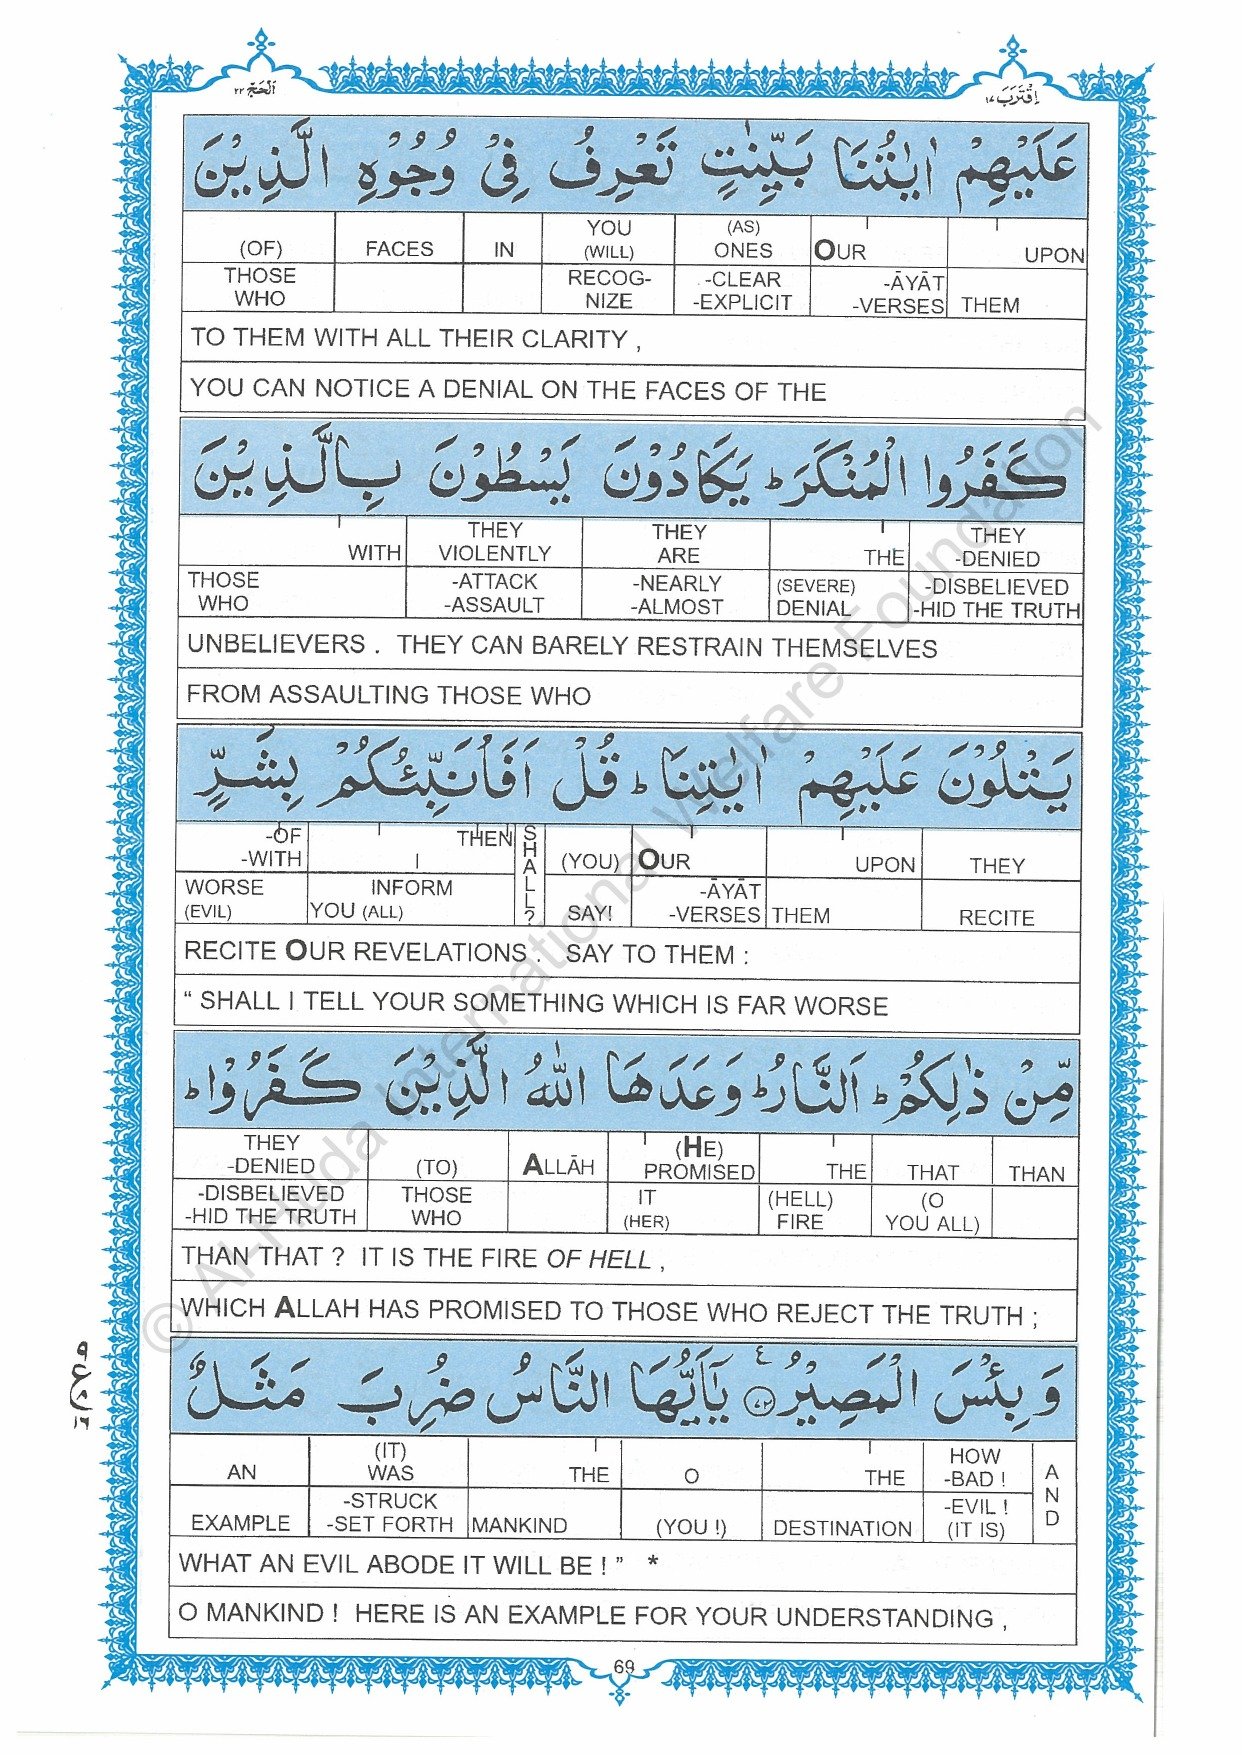 اَلْحَجّ ٢٢
اِقْتَرَبَ ١٧
عَلَيْهِمْ اٰيٰتُنَا بَيِّنٰتٍ تَعْرِفُ فِيْ وُجُوْهِ الَّذِيْنَ
(OF) FACES IN YOU (WILL) (AS) ONES OUR UPON
THOSE WHO RECOG- NIZE -CLEAR -EXPLICIT -ĀYĀT -VERSES THEM
TO THEM WITH ALL THEIR CLARITY ,
YOU CAN NOTICE A DENIAL ON THE FACES OF THE
كَفَرُوا الْمُنْكَرَ ؕ يَكَادُوْنَ يَسْطُوْنَ بِالَّذِيْنَ
WITH THEY VIOLENTLY THEY ARE THE THEY -DENIED
THOSE WHO -ATTACK -ASSAULT -NEARLY -ALMOST (SEVERE) DENIAL -DISBELIEVED -HID THE TRUTH
UNBELIEVERS . THEY CAN BARELY RESTRAIN THEMSELVES
FROM ASSAULTING THOSE WHO
يَتْلُوْنَ عَلَيْهِمْ اٰيٰتِنَا ؕ قُلْ اَفَاُنَبِّئُكُمْ بِشَرٍّ
-OF -WITH THEN I SHALL? (YOU) OUR UPON THEY
WORSE (EVIL) INFORM YOU (ALL) SAY! -ĀYĀT -VERSES THEM RECITE
RECITE OUR REVELATIONS . SAY TO THEM :
“ SHALL I TELL YOUR SOMETHING WHICH IS FAR WORSE
مِّنْ ذٰلِكُمْ ؕ اَلنَّارُ ؕ وَعَدَهَا اللّٰهُ الَّذِيْنَ كَفَرُوْا ؕ
THEY -DENIED (TO) ALLĀH (HE) PROMISED THE THAT THAN
-DISBELIEVED -HID THE TRUTH THOSE WHO IT (HER) (HELL) FIRE (O YOU ALL)
THAN THAT ? IT IS THE FIRE OF HELL ,
WHICH ALLAH HAS PROMISED TO THOSE WHO REJECT THE TRUTH ;
وَبِئْسَ الْمَصِيْرُ ۧ ٧٢ يٰۤاَيُّهَا النَّاسُ ضُرِبَ مَثَلٌ
٩
ع ٨
١٦
AN (IT) WAS THE O THE HOW -BAD ! AND
EXAMPLE -STRUCK -SET FORTH MANKIND (YOU !) DESTINATION -EVIL ! (IT IS)
WHAT AN EVIL ABODE IT WILL BE ! ” *
O MANKIND ! HERE IS AN EXAMPLE FOR YOUR UNDERSTANDING ,
69
© Al-Huda International Welfare Foundation